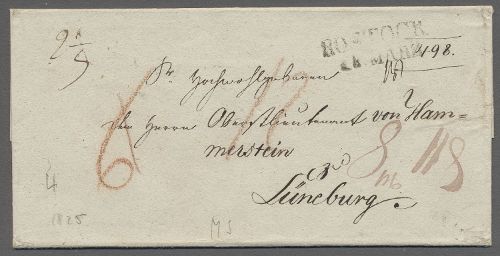 ROSTOCK
24 MÄRZ
498.
Sr Hochwohlgeboren
dem Herrn Oberstlieutenant von Ham=
merstein
Lüneburg.
6
4
1825
MS